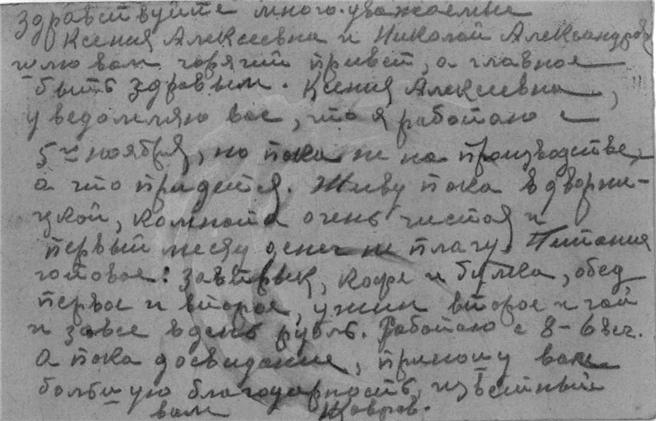 Здравствуйте много-уважаемые
Ксения Алексеевна и Николай Александров
шлю вам горячий привет, а главное
быть здравым. Ксения Алексеевна,
уведомляю вас, что я работаю с
5го ноября, но пока не на производстве,
а что придется. Живу пока в дворни-
цкой, комната очень чистая и
первый месяц денег не плачу. Питания
готовое: завтрык, кофе и булка, обед
первое и второе, ужин второе и чай
и за все в день рубль. Работаю с 8-6 вч.
А пока досвидание, приношу вам
большую благодарность, извѣстный
вам